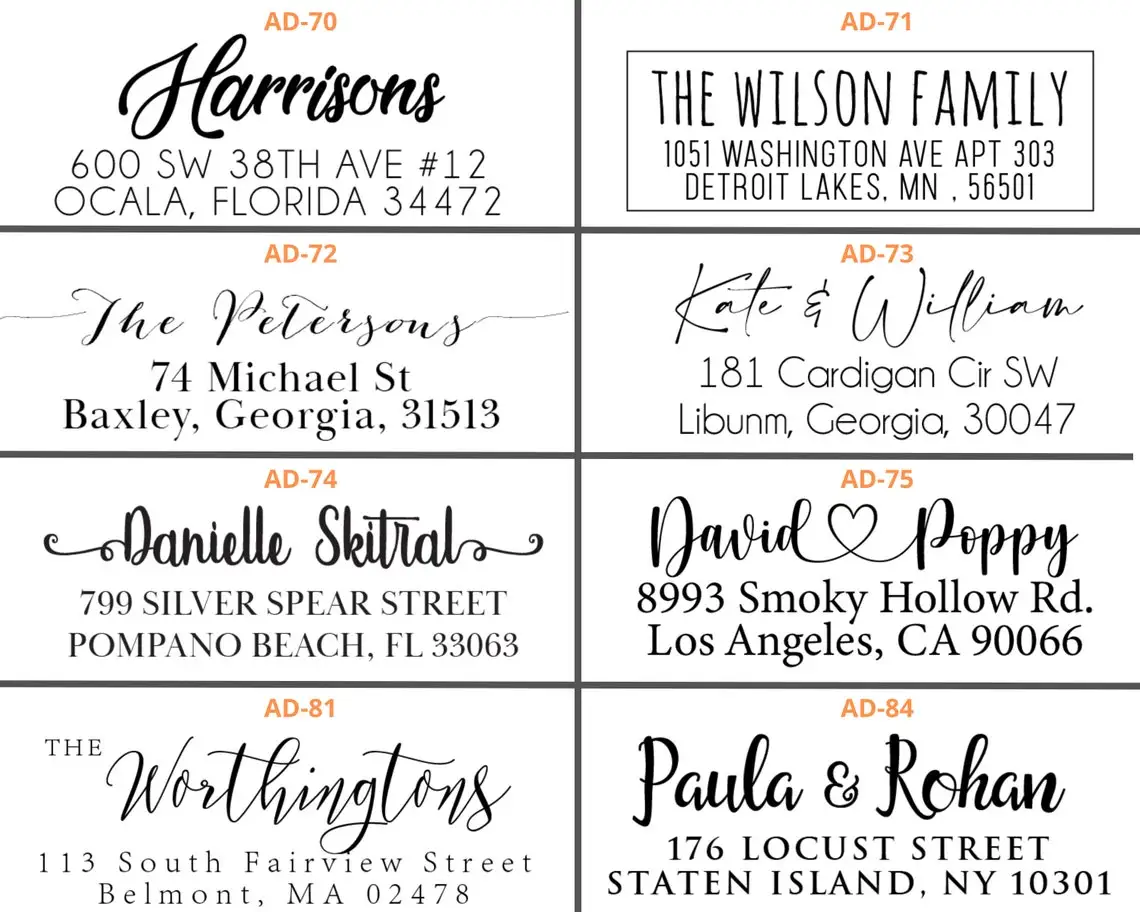 AD-70
Harrisons
600 SW 38TH AVE #12
OCALA, FLORIDA 34472
AD-71
THE WILSON FAMILY
1051 WASHINGTON AVE APT 303
DETROIT LAKES, MN , 56501
AD-72
The Petersons
74 Michael St
Baxley, Georgia, 31513
AD-73
Kate & William
181 Cardigan Cir SW
Libunm, Georgia, 30047
AD-74
Danielle Skitral
799 SILVER SPEAR STREET
POMPANO BEACH, FL 33063
AD-75
David Poppy
8993 Smoky Hollow Rd.
Los Angeles, CA 90066
AD-81
THE Worthingtons
113 South Fairview Street
Belmont, MA 02478
AD-84
Paula & Rohan
176 LOCUST STREET
STATEN ISLAND, NY 10301